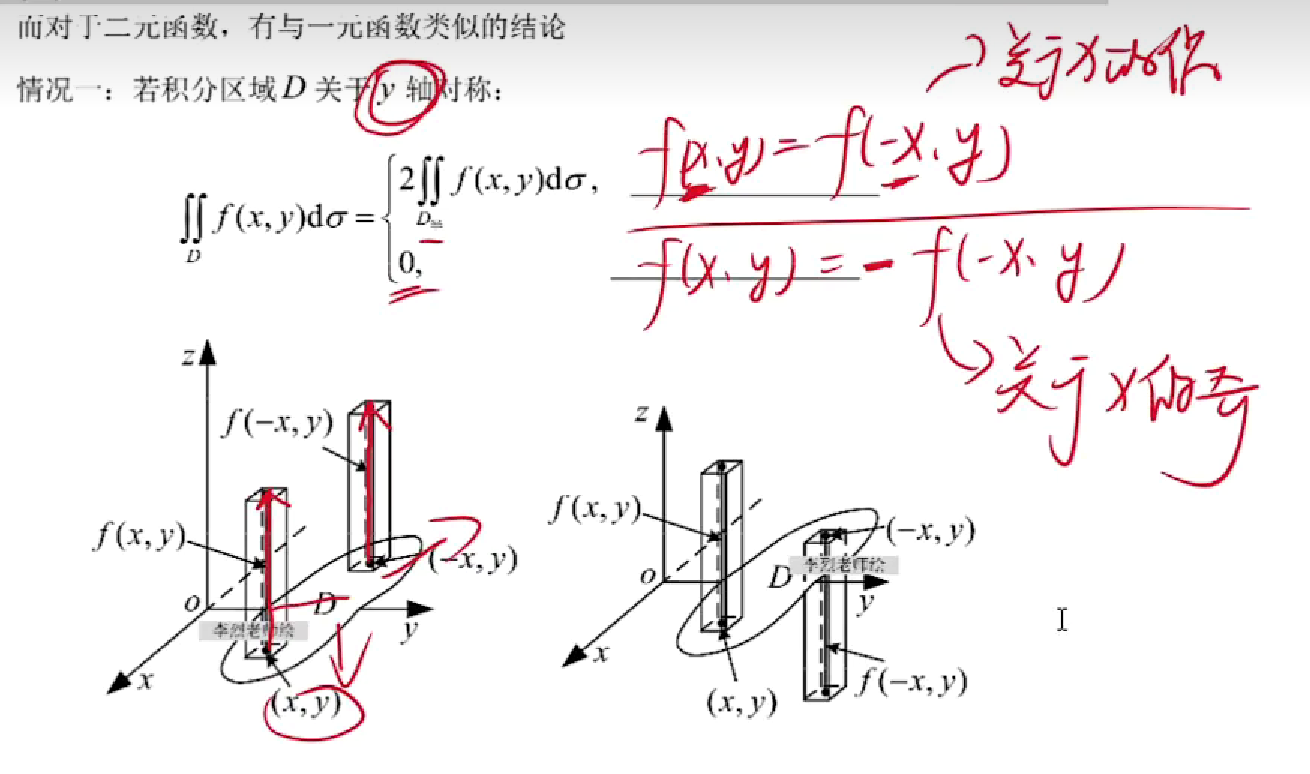 而对于二元函数，有与一元函数类似的结论
情况一：若积分区域D关于y轴对称：
→关于x的偶
∬_D f(x,y)dσ = { 2∬ f(x,y)dσ, f(x,y)=f(-x,y)
0, f(x,y)=-f(-x,y)
→关于x的奇
z
f(-x,y)
f(x,y)
(-x,y)
o
D
y
李烈老师绘
x
(x,y)
z
f(x,y)
(-x,y)
李烈老师绘
o
D
y
x
f(-x,y)
(x,y)